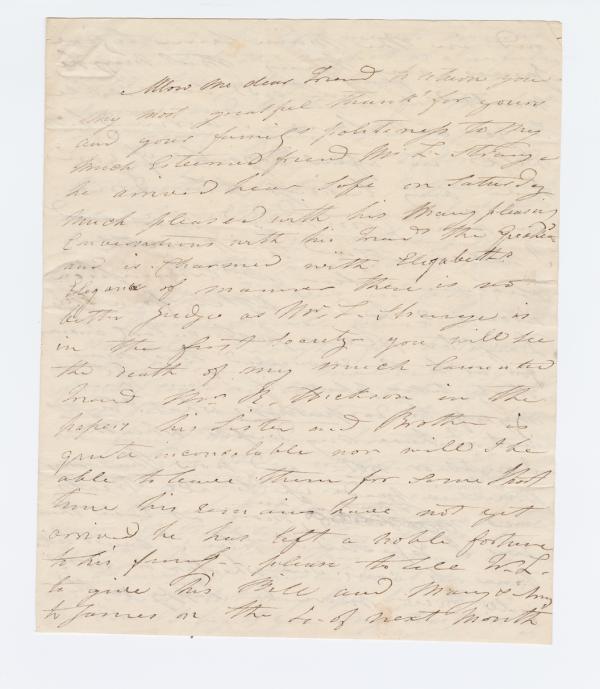 Allow me dear Friend to return you
my most greatful thank's for yours
and your family's politeness to my
much Esteemed friend Mr L. Strange
he arrived hear safe on Saturday
much pleased with his many pleasing
Conversations with his Friend the
and is Charmed with Elizabeths
Elegance of manner there is no
better Judge as Mr L. Strange is
in the first Society you will see
the death of my much lamented
friend Mr R. Hickson in the
papers his Sister and Brother is
quite inconsolable nor will I be
able to leave them for some Short
time his remains have not yet
arrived he has left a noble fortune
to his family - please to tell
to give this Bill and Mary &
to James on the of next Month